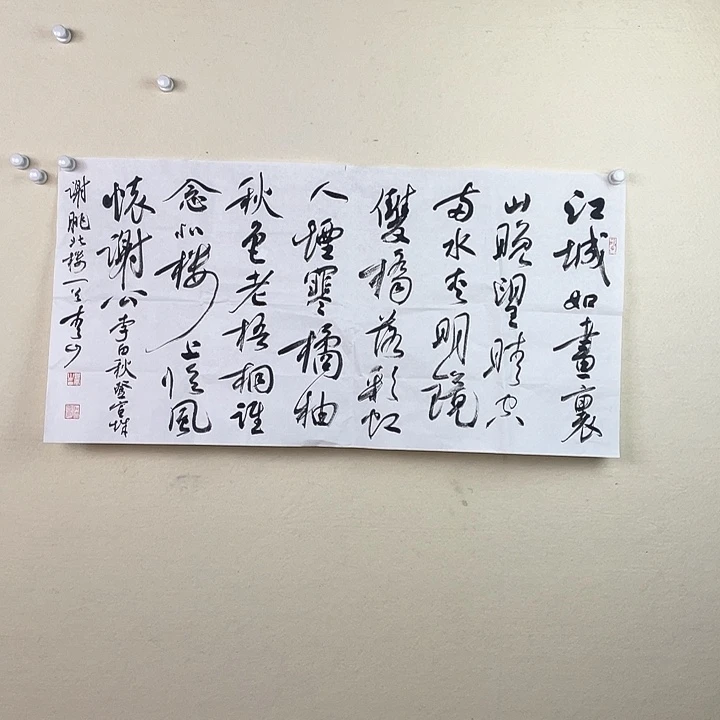 江城如畫裏
山晚望晴空
两水夾明鏡
雙橋落彩虹
人煙寒橘柚
秋色老梧桐誰
念北楼上临風
懷謝公 李白秋登宣城
謝朓北楼一